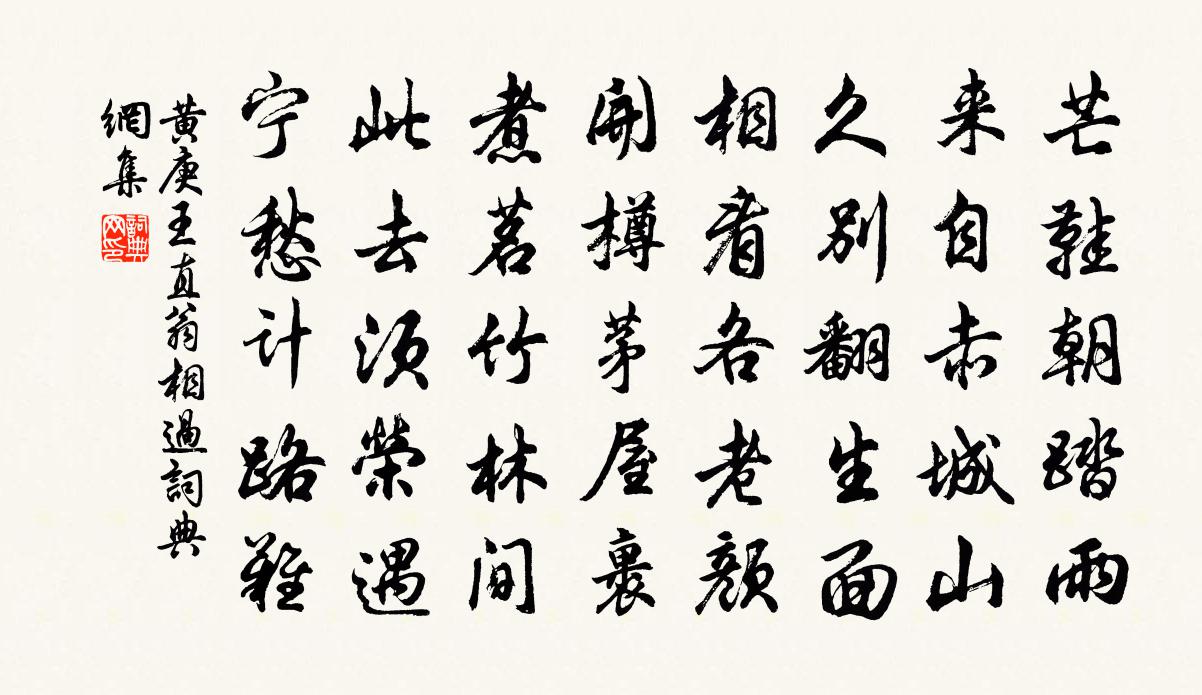 芒鞋朝踏雨
来自赤城山
久别翻生面
相看各老颜
開樽茅屋裏
煮茗竹林间
此去须榮遇
宁愁计路難
黄庚王直翁相過詞典
網集
詞典
网印